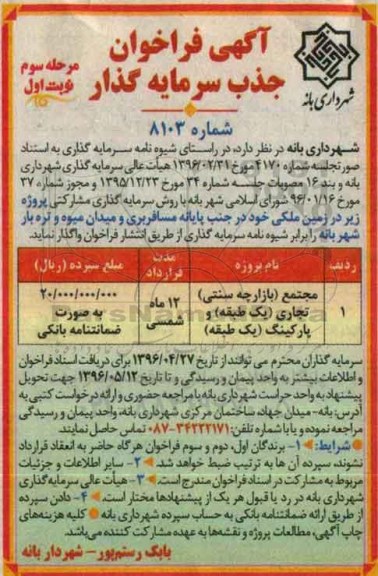 آگهی فراخوان
جذب سرمایه گذار
مرحله سوم
نوبت اول
شهرداری بانه
شماره ۸۱۰۳
شهرداری بانه در نظر دارد، در راستای شیوه نامه سرمایه گذاری به استناد
صورتجلسه شماره ۴۱۷۰ مورخ ۱۳۹۶/۰۲/۳۱ هیأت عالی سرمایه گذاری شهرداری
بانه و بند ۱۶ مصوبات جلسه شماره ۳۴ مورخ ۱۳۹۵/۱۲/۲۳ و مجوز شماره ۳۷
مورخ ۹۶/۰۱/۱۶ شورای اسلامی شهر بانه با روش سرمایه گذاری مشارکتی پروژه
زیر در زمین ملکی خود در جنب پایانه مسافربری و میدان میوه و تره بار
شهر بانه را برابر شیوه نامه سرمایه گذاری از طریق انتشار فراخوان واگذار نماید.
ردیف نام پروژه مدت قرارداد مبلغ سپرده (ریال)
۱ مجتمع (بازارچه سنتی) تجاری (یک طبقه) و پارکینگ (یک طبقه) ۱۲ ماه شمسی ۲۰/۰۰۰/۰۰۰/۰۰۰ به صورت ضمانتنامه بانکی
سرمایه گذاران محترم می توانند از تاریخ ۱۳۹۶/۰۴/۲۷ برای دریافت اسناد فراخوان
و اطلاعات بیشتر به واحد پیمان و رسیدگی و تا تاریخ ۱۳۹۶/۰۵/۱۲ جهت تحویل
پیشنهاد به واحد حراست شهرداری بانه با مراجعه حضوری و ارائه درخواست کتبی به
آدرس: بانه- میدان جهاد، ساختمان مرکزی شهرداری بانه، واحد پیمان و رسیدگی
مراجعه نموده و یا با شماره تلفن: ۳۴۲۲۲۱۷۱-۰۸۷ تماس حاصل نمایند.
شرایط: ۱- برندگان اول، دوم و سوم فراخوان هرگاه حاضر به انعقاد قرارداد
نشوند، سپرده آن ها به ترتیب ضبط خواهد شد. ۲- سایر اطلاعات و جزئیات
مربوط به مشارکت در اسناد فراخوان مندرج است. ۳- هیأت عالی سرمایه گذاری
شهرداری بانه در رد یا قبول هر یک از پیشنهادها مختار است. ۴- دادن سپرده
از طریق ارائه ضمانتنامه بانکی به حساب سپرده شهرداری بانه کلیه هزینه های
چاپ آگهی، مطالعات پروژه و نقشه ها به عهده مشارکت کننده می باشد.
بابک رستم پور- شهردار بانه